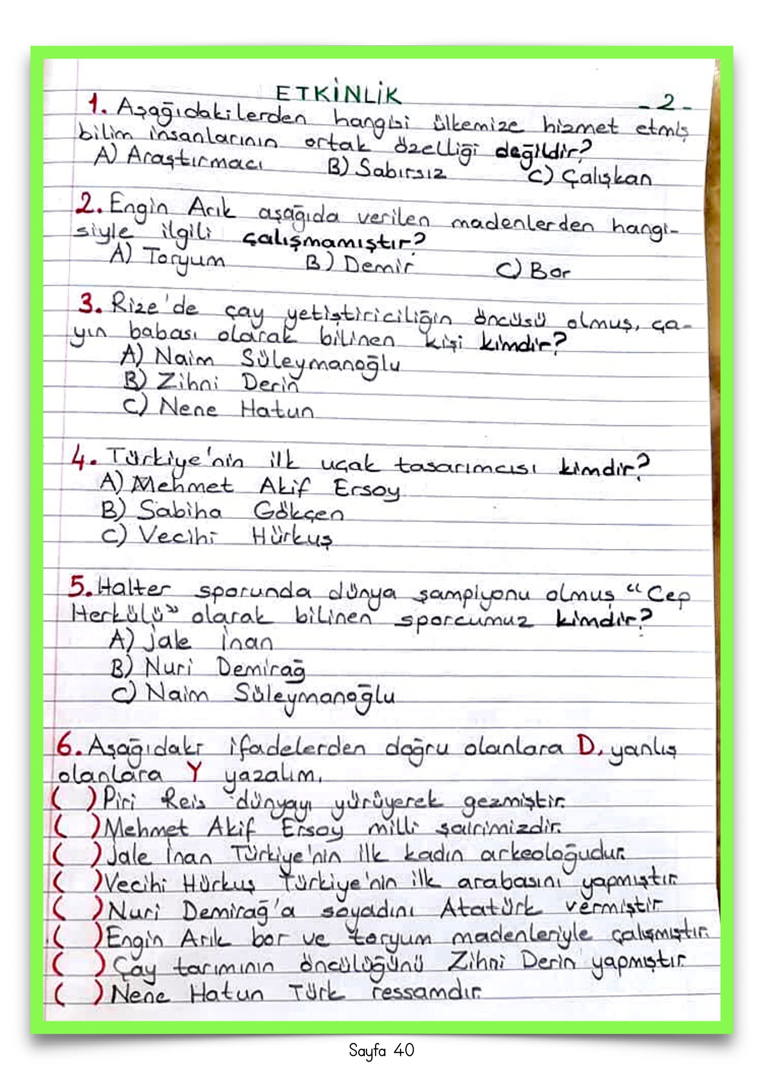 ETKİNLİK
- 2 -
1. Aşağıdakilerden hangisi ülkemize hizmet etmiş
bilim insanlarının ortak özelliği değildir?
A) Araştırmacı B) Sabırsız C) Çalışkan
2. Engin Arık aşağıda verilen madenlerden hangi-
siyle ilgili çalışmamıştır?
A) Toryum B) Demir C) Bor
3. Rize'de çay yetiştiriciliğin öncüsü olmuş, ça-
yın babası olarak bilinen kişi kimdir?
A) Naim Süleymanoğlu
B) Zihni Derin
C) Nene Hatun
4. Türkiye'nin ilk uçak tasarımcısı kimdir?
A) Mehmet Akif Ersoy
B) Sabiha Gökçen
C) Vecihi Hürkuş
5. Halter sporunda dünya şampiyonu olmuş "Cep
Herkülü" olarak bilinen sporcumuz kimdir?
A) Jale İnan
B) Nuri Demirağ
C) Naim Süleymanoğlu
6. Aşağıdaki ifadelerden doğru olanlara D, yanlış
olanlara Y yazalım.
( ) Piri Reis dünyayı yürüyerek gezmiştir.
( ) Mehmet Akif Ersoy milli şairimizdir.
( ) Jale İnan Türkiye'nin ilk kadın arkeoloğudur.
( ) Vecihi Hürkuş Türkiye'nin ilk arabasını yapmıştır.
( ) Nuri Demirağ'a soyadını Atatürk vermiştir.
( ) Engin Arık bor ve toryum madenleriyle çalışmıştır.
( ) Çay tarımının öncülüğünü Zihni Derin yapmıştır.
( ) Nene Hatun Türk ressamdır.
Sayfa 40